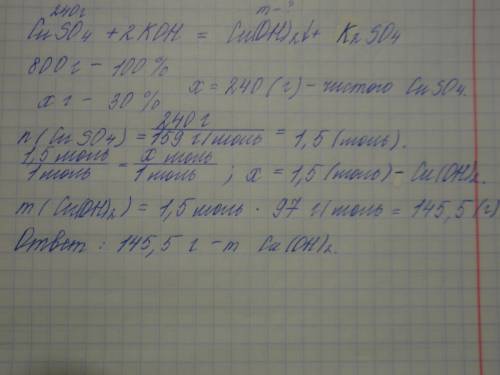 240г m - ?
CuSO4 + 2 KOH = Cu(OH)2↓ + K2SO4
800 г - 100 %
x г - 30 % x = 240 (г) - чистого CuSO4.
n (CuSO4) = 240 г / 159 г/моль = 1,5 (моль).
1,5 моль / 1 моль = x моль / 1 моль ; x = 1,5 (моль) - Cu(OH)2.
m (Cu(OH)2) = 1,5 моль · 97 г/моль = 145,5 (г)
Ответ : 145,5 г - m Cu(OH)2.